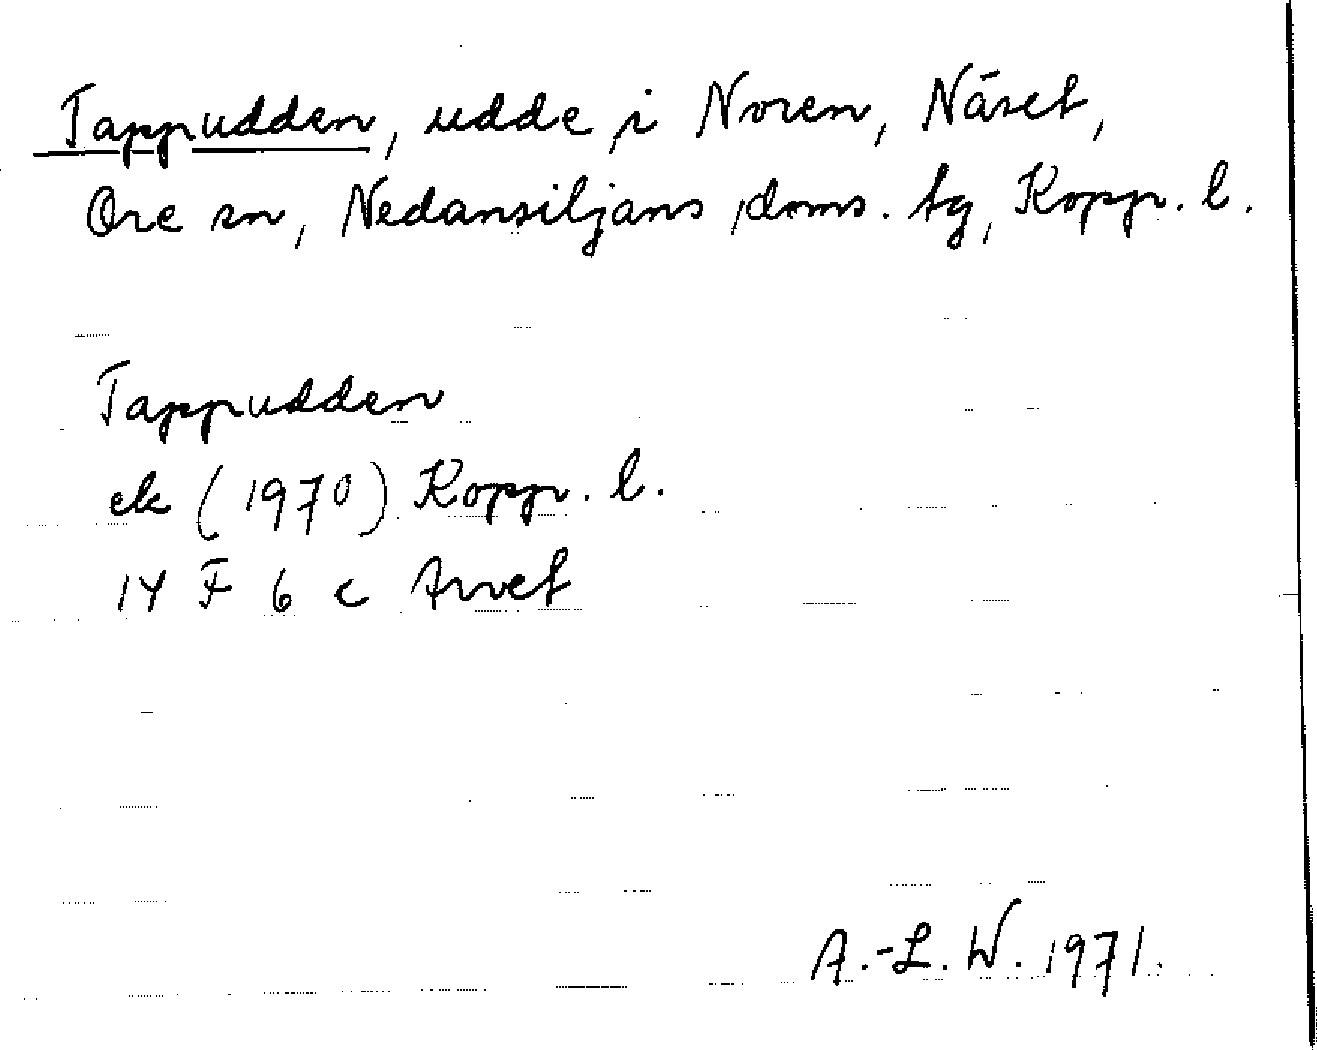 Tappudden, udde i Noren, Näset,
Ore sn, Nedansiljans doms. tg, Kopp. l.
Tappudden
ek (1970) Kopp. l.
14 F 6 c Arvet
A.-L. W. 1971.